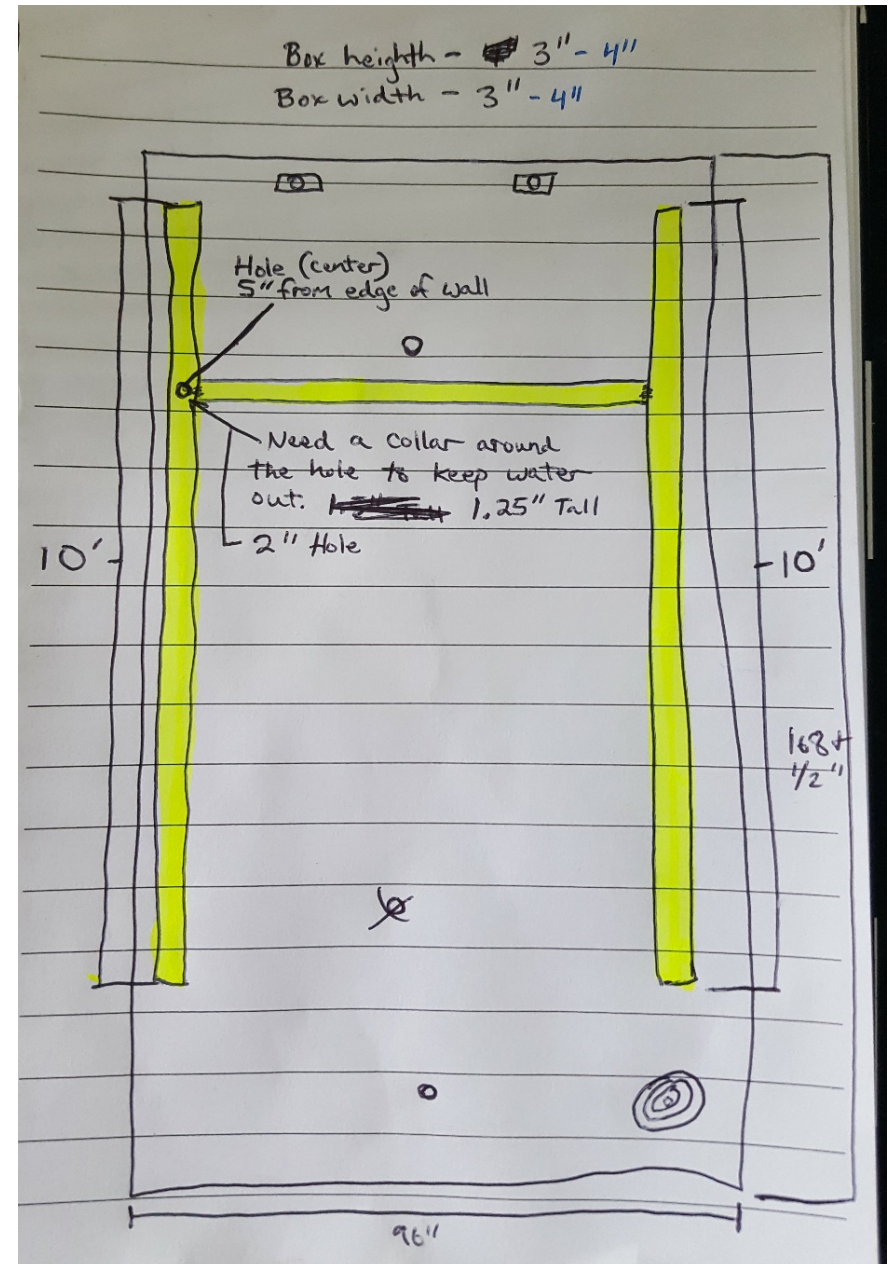 Box heighth - 3" - 4"
Box width - 3" - 4"
Hole (center)
5" from edge of wall
Need a collar around
the hole to keep water
out. 1.25" Tall
2" Hole
10'
10'
168 +
1/2"
96"